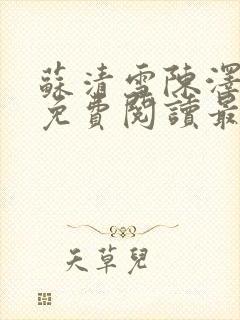 蘇清雪陳澤
免費閱讀最
天草兒